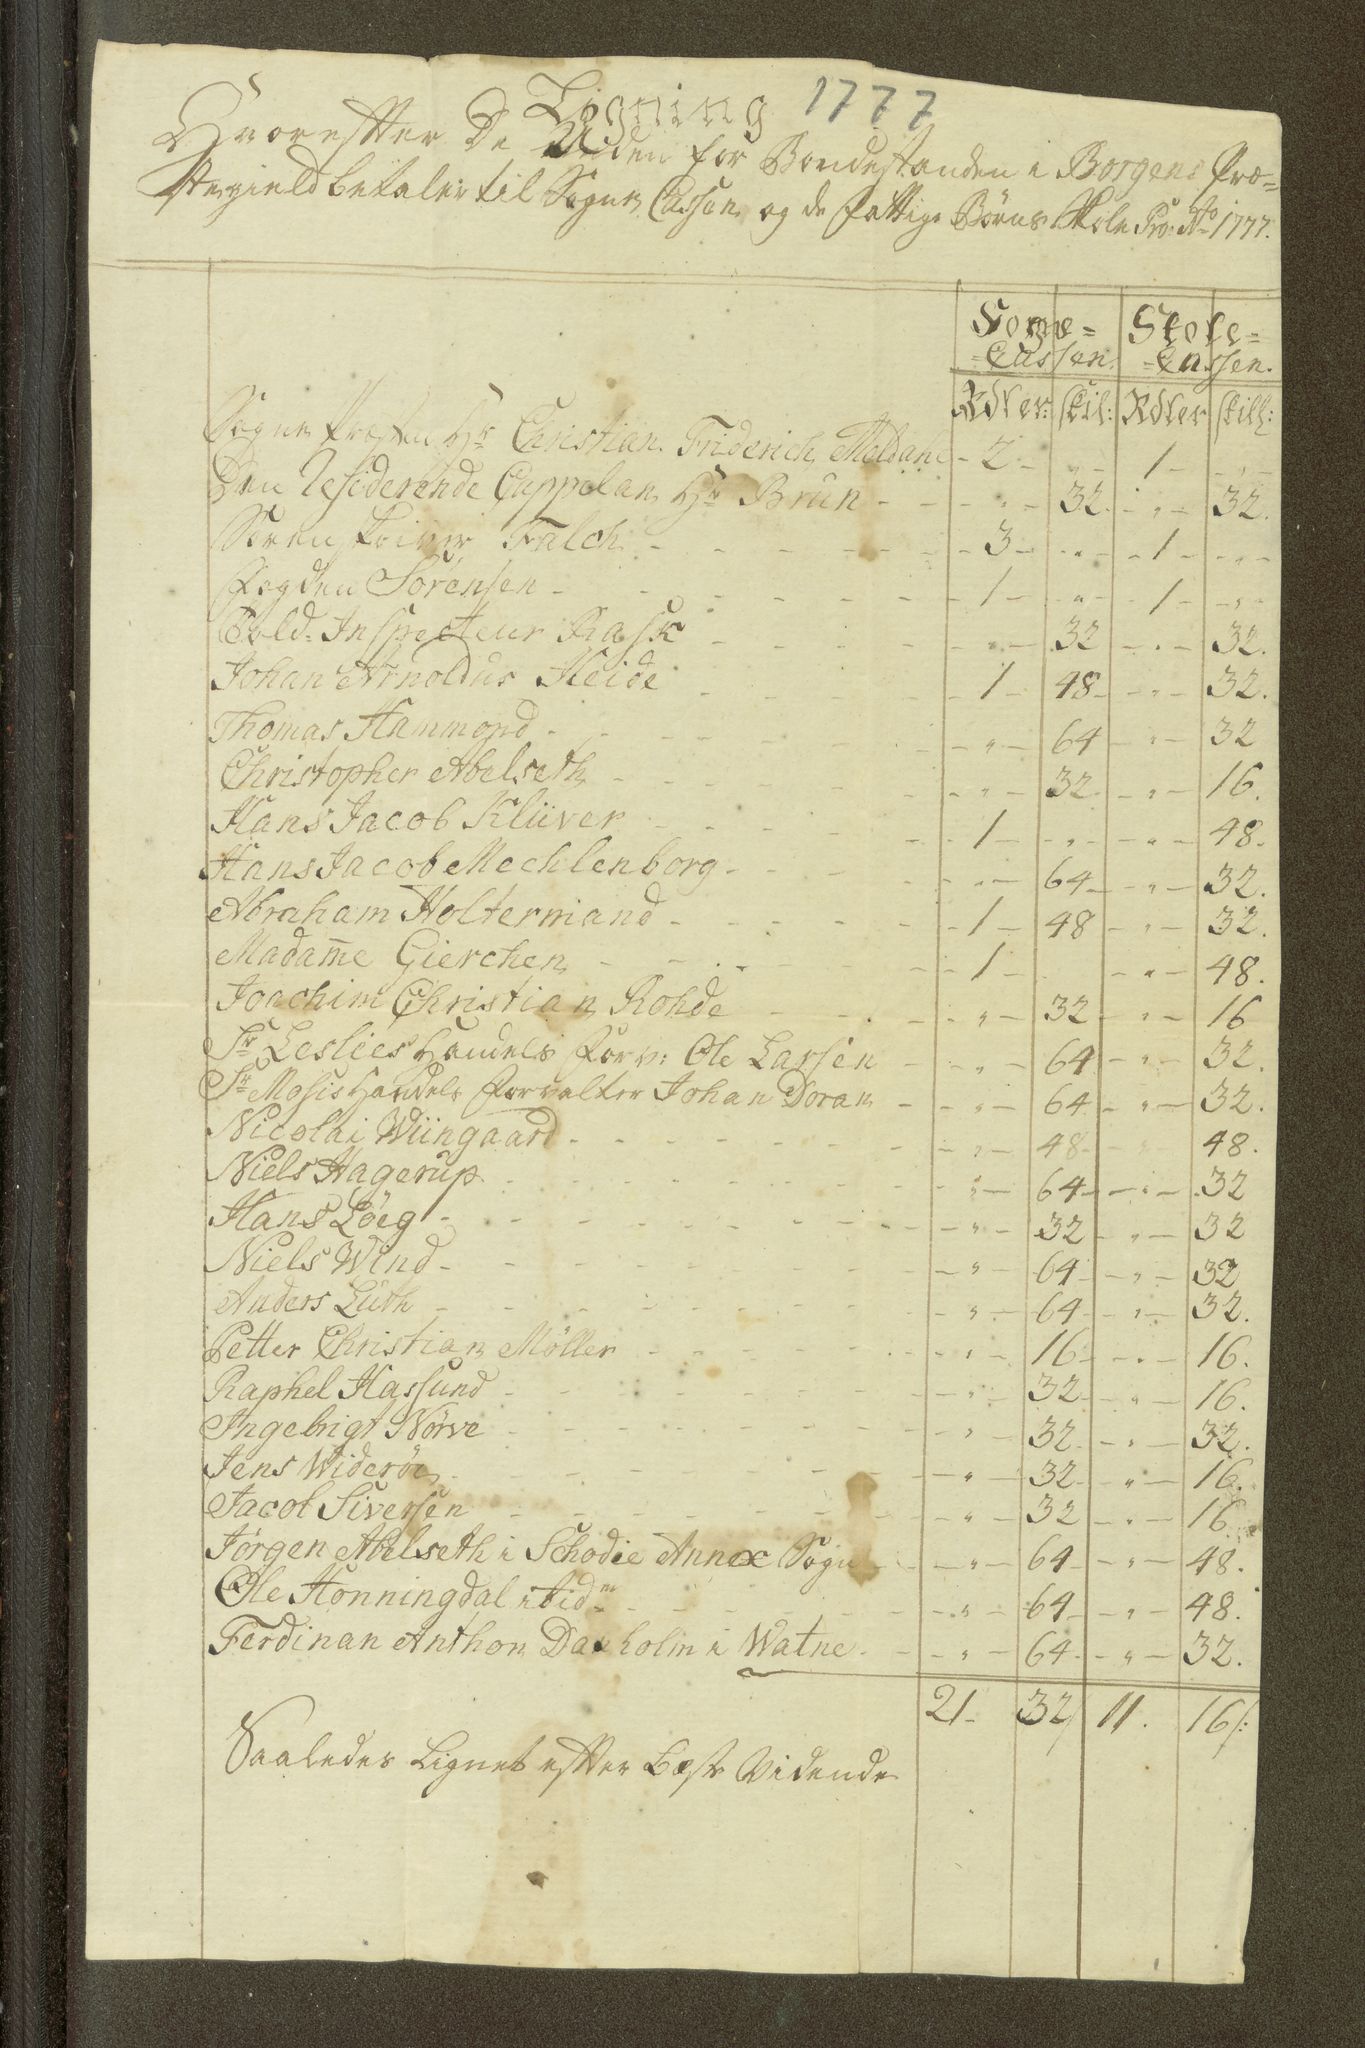 Ligning 1777
Hvorefter De Uden for Bondestanden i Borgens Præ=
stegield betaler til Sogne Cassen og de fattige Börns Skole Pro: Ao 1777.
Sogne= Skole=
=Cassen. =Cassen.
Rdler: skil: Rdler skill:
Sogne Præsten Hr Christian Friderich Meldahl - 2 - „ - 1 - „ -
Den Resederende Cappelan Hr Brun - - - „ - 32. - „ - 32.
Sorenskriver Falch - - - 3 - „ - 1 - „ -
Fogden Sörensen - - - 1 - „ - 1 - „ -
Told-Inspecteur Rask - - - „ - 32 - „ - 32.
Johan Arnoldus Heide - - - 1 - 48 - „ - 32.
Thomas Hammond - - - „ - 64 - „ - 32
Christopher Abelseth - - - „ - 32 - „ - 16.
Hans Jacob Klüver - - - 1 - „ - „ - 48.
Hans Jacob Mechlenborg - - - „ - 64 - „ - 32.
Abraham Holtermand - - - 1 - 48 - „ - 32.
Madame Gierchen - - - 1 - - „ - 48.
Joachim Christian Rohde - - - „ - 32 - „ - 16
Sr Leslies Handels Forv: Ole Larsen - „ - 64 - „ - 32.
Sr Mosis Handels Forvalter Johan Doran - - „ - 64 - „ - 32.
Nicolai Wiingaard - - - „ - 48 - „ - 48.
Niels Hagerup - - - „ - 64 - „ - 32
Hans Löeg - - - „ - 32 - „ - 32
Niels Wind - - - „ - 64 - „ - 32
Anders Lüth - - - „ - 64 - „ - 32.
Petter Christian Möller - - - „ - 16 - „ - 16.
Raphel Hassund - - - „ - 32 - „ - 16.
Ingebrigt Nörve - - - „ - 32 - „ - 32.
Jens Wideröe - - - „ - 32 - „ - 16.
Jacob Siversen - - - „ - 32 - „ - 16
Jörgen Abelseth i Schodie Annex Sogn - - „ - 64 - „ - 48.
Ole Honningdal ibidm - - - „ - 64 - „ - 48.
Ferdinan Anthon Daeholin i Watne - - „ - 64 - „ - 32.
21 - 32/ 11. 16/:
Saaledes Lignet efter Bæste Vidende